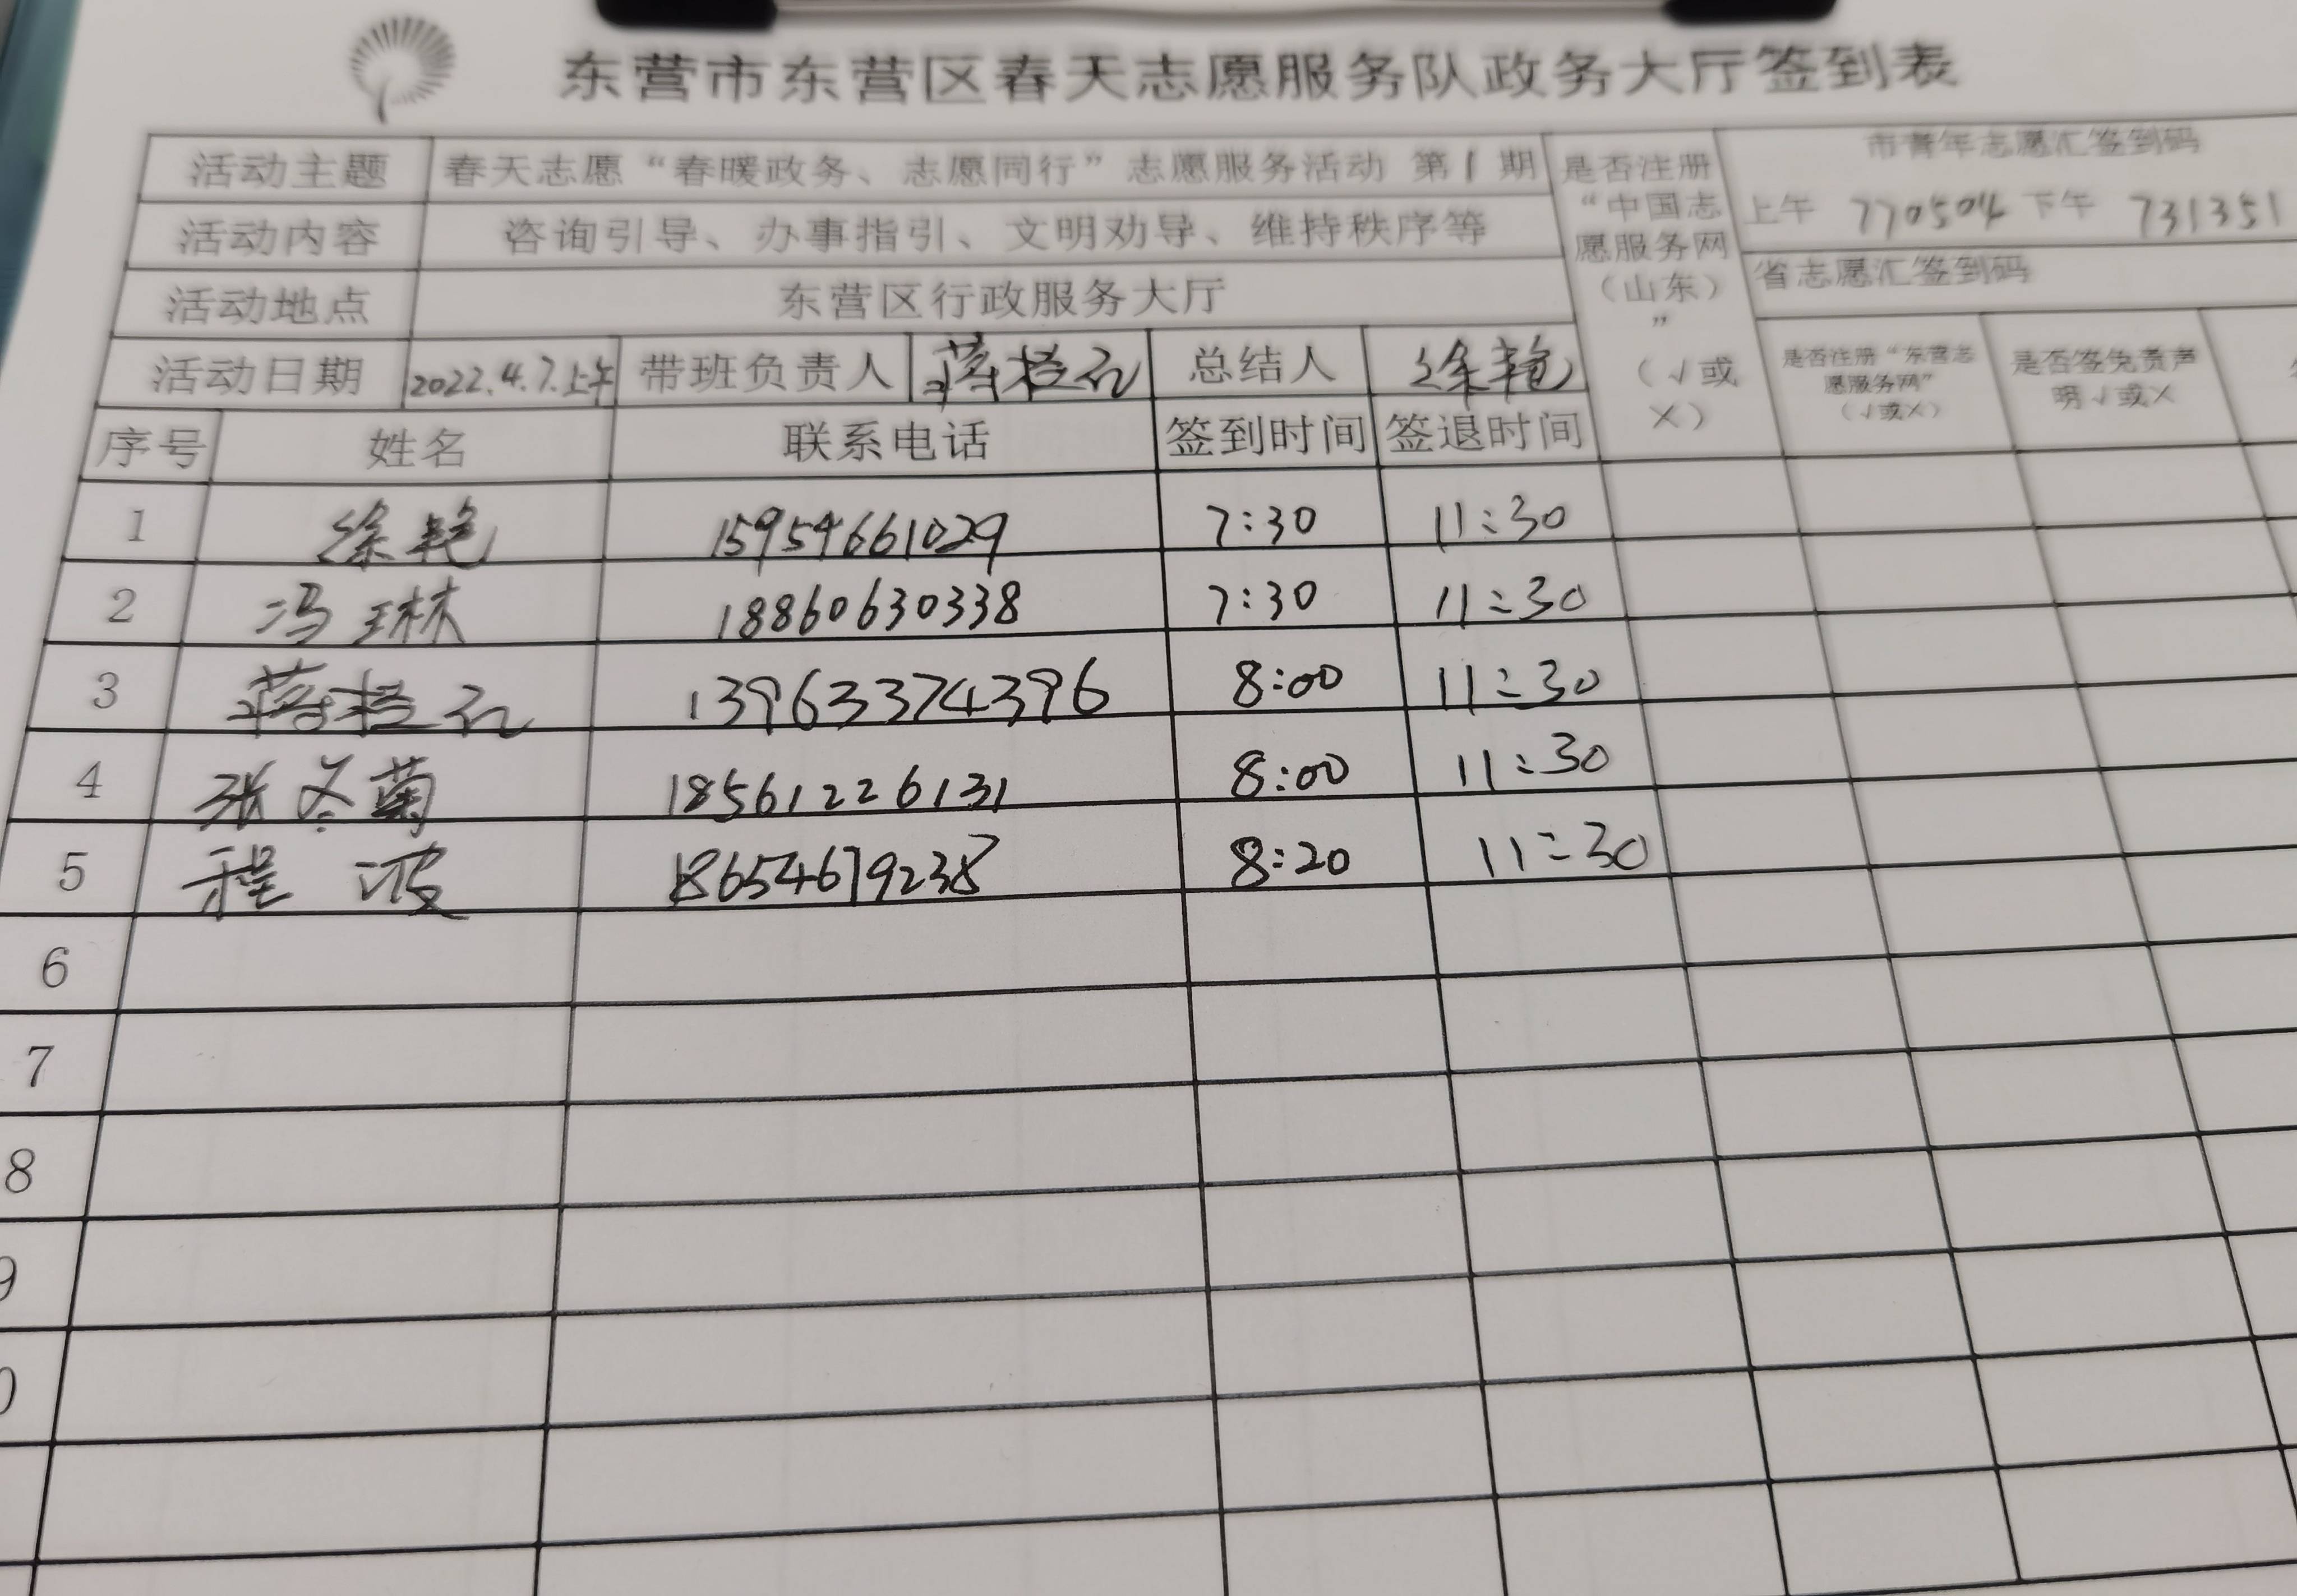 东营市东营区春天志愿服务队政务大厅签到表
活动主题 春天志愿“春暖政务、志愿同行”志愿服务活动 第1期
活动内容 咨询引导、办事指引、文明劝导、维持秩序等
活动地点 东营区行政服务大厅
活动日期 2022.4.7.上午 带班负责人 总结人 徐艳
是否注册“中国志愿服务网（山东）”（√或×）
市青年志愿汇签到码
上午 770504 下午 731351
省志愿汇签到码
是否注册“东营志愿服务网”（√或×）
是否签免责声明√或×
序号 姓名 联系电话 签到时间 签退时间
1 徐艳 15954661029 7:30 11:30
2 冯琳 18860630338 7:30 11:30
3 13963374396 8:00 11:30
4 张冬菊 18561226131 8:00 11:30
5 程波 18654679238 8:20 11:30
6
7
8
9
0